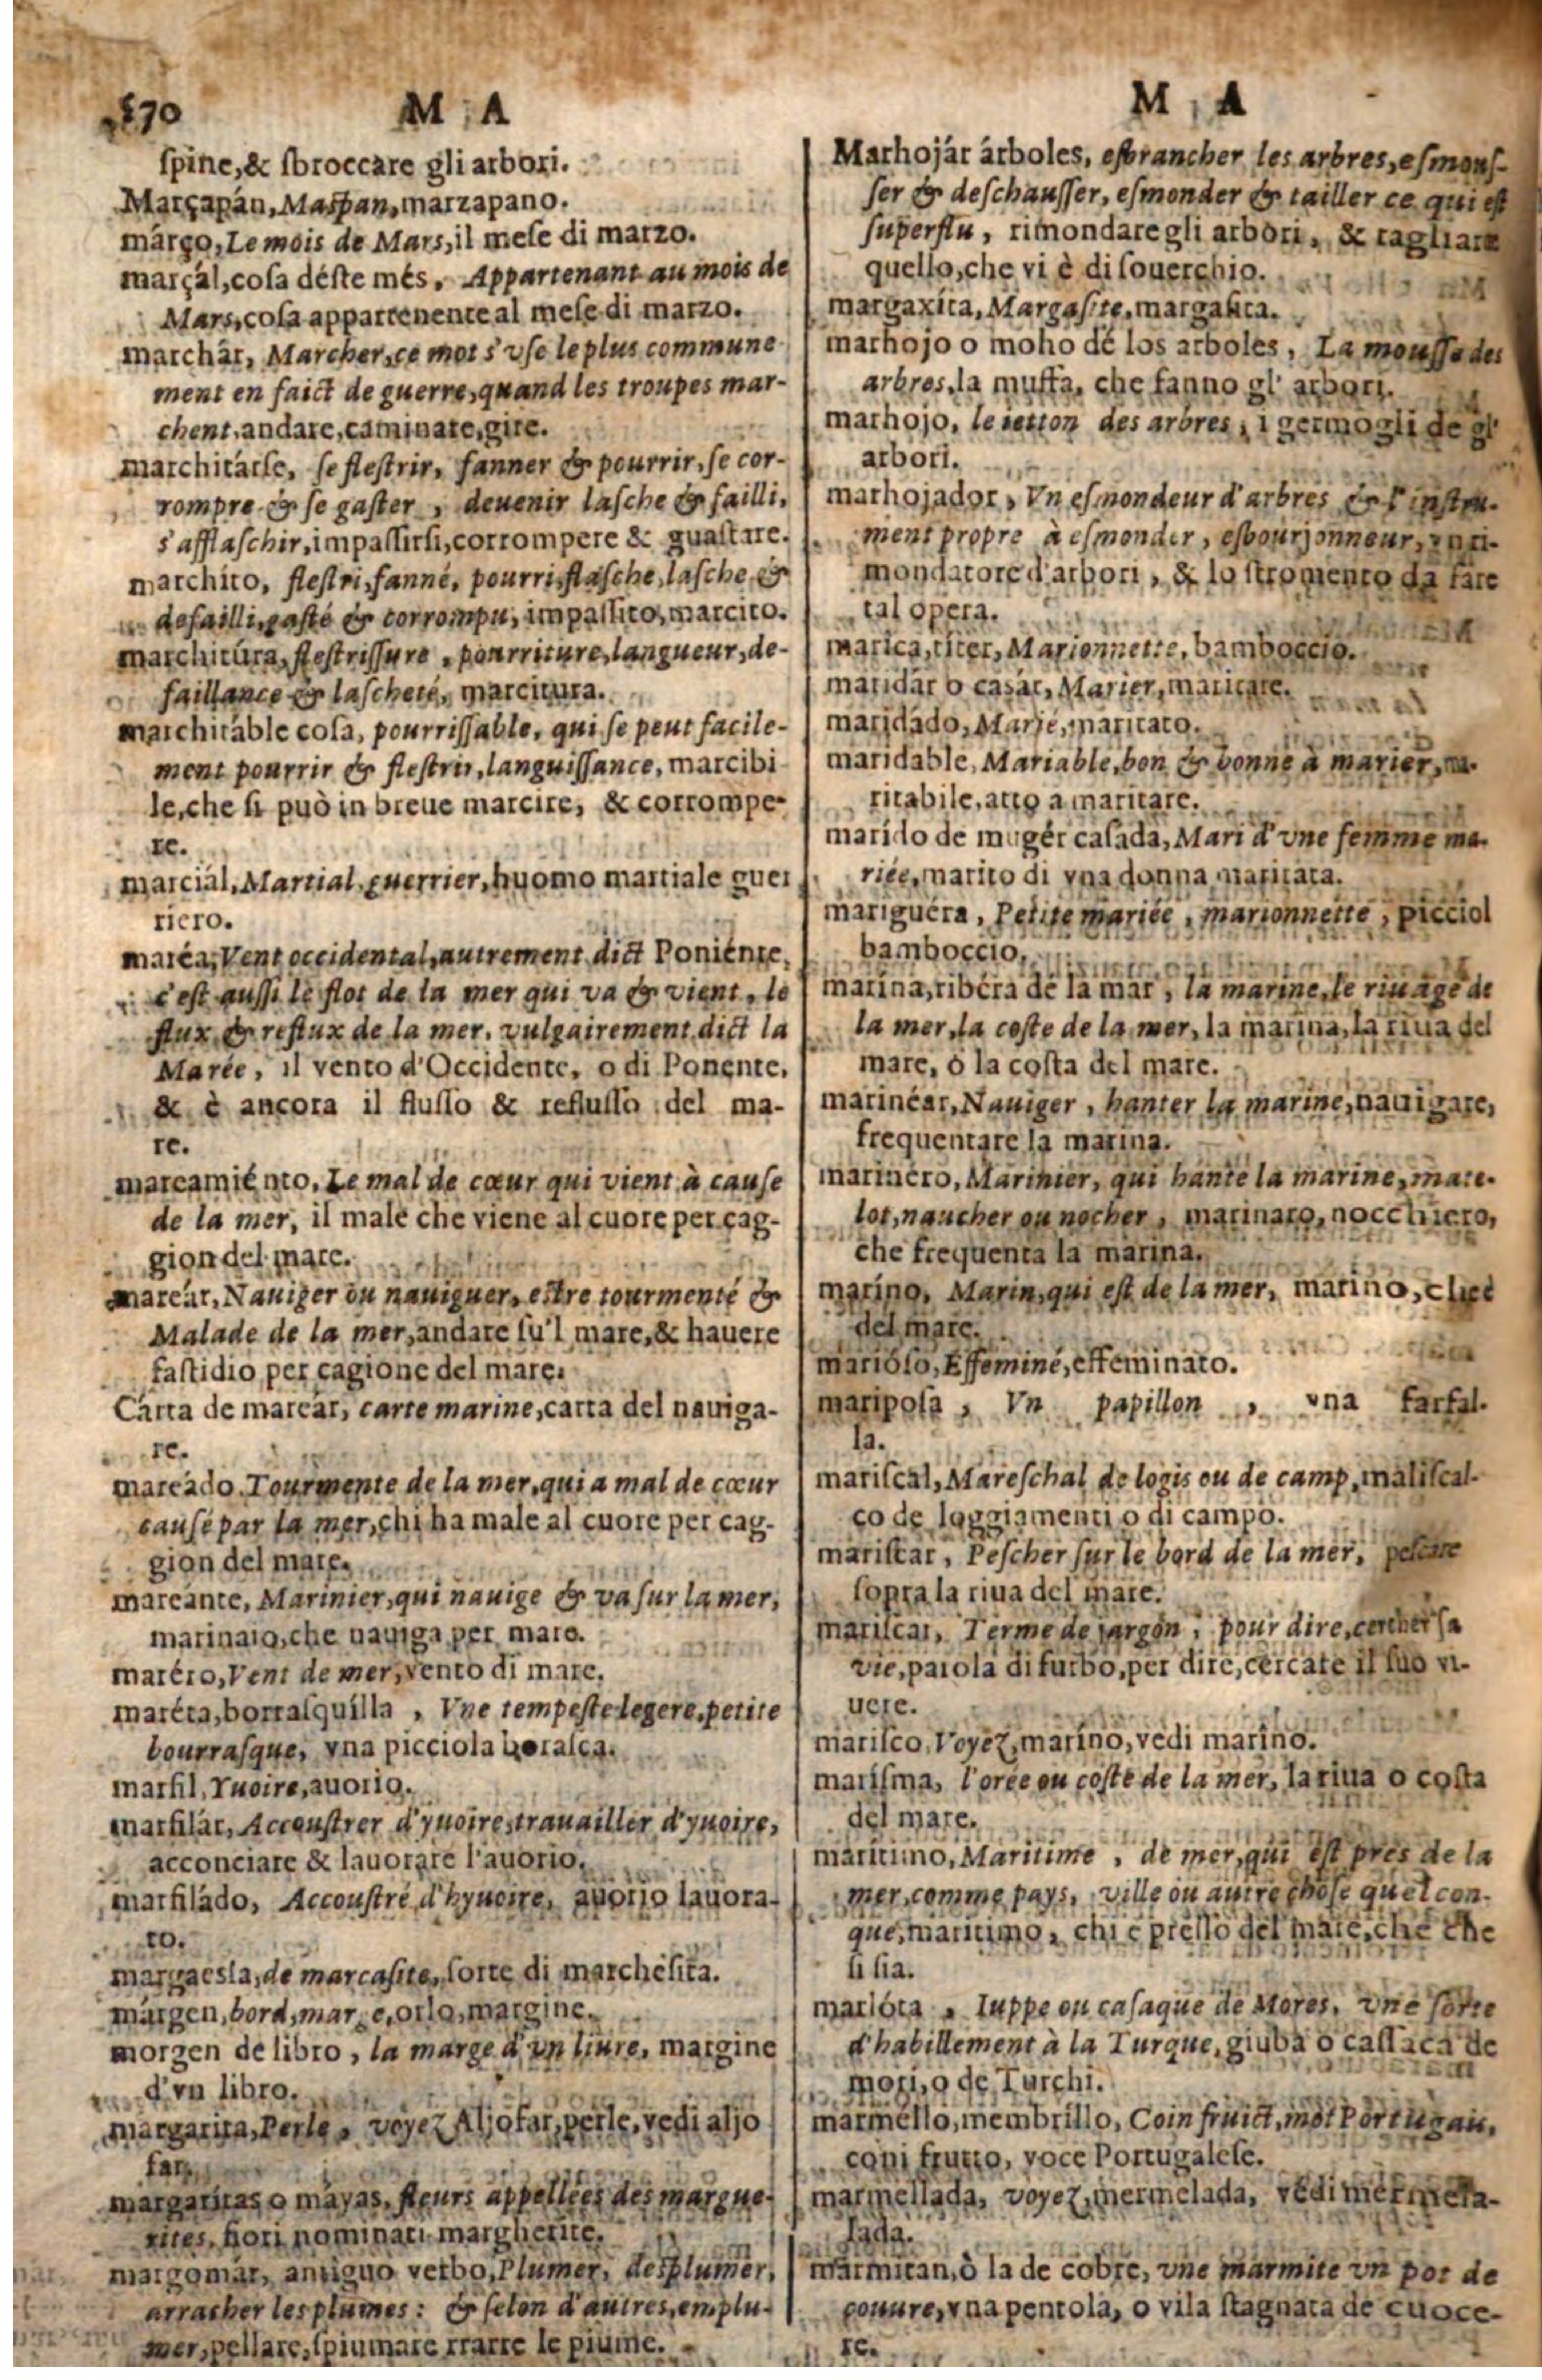 570 M A
ſpine,& ſbroccare gli arbori.
Marçapán, Maſpan, marzapano.
março, Le mois de Mars, il meſe di marzo.
marçál, coſa déſte més, Appartenant au mois de
Mars, coſa appartenente al meſe di marzo.
marchár, Marcher, ce mot s'vſe le plus commune
ment en faict de guerre, quand les troupes mar-
chent, andare, caminare, gire.
marchitárſe, ſe fleſtrir, fanner & pourrir, ſe cor-
rompre & ſe gaſter, deuenir laſche & failli,
s'afflaſchir, impaſſirſi, corrompere & guaſtare.
marchíto, fleſtri, fanné, pourri, flaſche, laſche &
defailli, gaſté & corrompu, impaſſito, marcito.
marchitúra, fleſtriſſure, pourriture, langueur, de-
faillance & laſcheté, marcitura.
marchitáble coſa, pourriſſable, qui ſe peut facile-
ment pourrir & fleſtrir, languiſſance, marcibi
le, che ſi può in breue marcire, & corrompe-
re.
marciál, Martial, guerrier, huomo martiale guer
riero.
maréa, Vent occidental, autrement dict Poniénte,
c'eſt auſſi le flot de la mer qui va & vient, le
flux & reflux de la mer, vulgairement dict la
Marée, il vento d'Occidente, o di Ponente,
& è ancora il fluſſo & refluſſo del ma-
re.
mareamiénto, Le mal de cœur qui vient à cauſe
de la mer, il male che viene al cuore per cag-
gion del mare.
mareár, Nauiger ou nauiguer, eſtre tourmenté &
Malade de la mer, andare ſu'l mare, & hauere
faſtidio per cagione del mare.
Cárta de mareár, carte marine, carta del nauiga-
re.
mareádo, Tourmente de la mer, qui a mal de cœur
cauſé par la mer, chi ha male al cuore per cag-
gion del mare.
mareánte, Marinier, qui nauige & va ſur la mer,
marinaio, che nauiga per mare.
maréro, Vent de mer, vento di mare.
maréta, borraſquilla, Vne tempeſte legere, petite
bourraſque, vna picciola boraſca.
marfil, Yuoire, auorio.
marfilár, Accouſtrer d'yuoire, trauailler d'yuoire,
acconciare & lauorare l'auorio.
marfiládo, Accouſtré d'hyuoire, auorio lauora-
to.
margaeſia, de marcaſite, ſorte di marcheſita.
márgen, bord, marge, orlo, margine.
morgen de libro, la marge d'vn liure, margine
d'vn libro.
margarita, Perle, voyez Aljofar, perle, vedi aljo
far.
margaritas o mayas, fleurs appellées des margue-
rites, fiori nominati margherite.
margomár, antiguo verbo, Plumer, desplumer,
arracher les plumes: & ſelon d'autres, emplu-
mer, pellare, ſpiumare rrarre le piume.
M A
Marhojár árboles, eſbrancher les arbres, eſmouſ-
ſer & deſchauſſer, eſmonder & tailler ce qui eſt
ſuperflu, rimondare gli arbori, & tagliare
quello, che vi è di ſouerchio.
margaxíta, Margaſite, margaſita.
marhojo o moho dé los arboles, La mouſſe des
arbres, la muffa, che fanno gl' arbori.
marhojo, le ietton des arbres, i germogli de gl'
arbori.
marhojador, Vn eſmondeur d'arbres & l'inſtru-
ment propre à eſmonder, esbourjonneur, vn ri-
mondatore d'arbori, & lo ſtromento da fare
tal opera.
marica, títer, Marionnette, bamboccio.
maridár o casár, Marier, maritare.
maridádo, Marié, maritato.
maridable, Mariable, bon & bonne à marier, ma-
ritabile, atto a maritare.
marído de mugér caſada, Mari d'vne femme ma-
riée, marito di vna donna maritata.
mariguéra, Petite mariée, marionnette, picciol
bamboccio.
marína, ribéra dé la mar, la marine, le riuage de
la mer, la coſte de la mer, la marina, la riua del
mare, ò la coſta del mare.
marinéar, Nauiger, hanter la marine, nauigare,
frequentare la marina.
marinéro, Marinier, qui hante la marine, mate-
lot, naucher ou nocher, marinaro, nocchiero,
che frequenta la marina.
maríno, Marin, qui eſt de la mer, marino, che è
del mare.
marióſo, Effeminé, effeminato.
maripoſa, Vn papillon, vna farfal-
la.
mariſcal, Mareſchal de logis ou de camp, maliſcal-
co de loggiamenti o di campo.
mariſcar, Peſcher ſur le bord de la mer, peſcare
ſopra la riua del mare.
mariſcar, Terme de jargon, pour dire, cercher ſa
vie, parola di furbo, per dire, cercare il ſuo vi-
uere.
mariſco, Voyez, maríno, vedi marino.
maríſma, l'orée ou coſte de la mer, la riua o coſta
del mare.
marítimo, Maritime, de mer, qui eſt pres de la
mer, comme pays, ville ou autre choſe quelcon-
que, maritimo, chi è preſſo del mare, che che
ſi ſia.
marlóta, Iuppe ou caſaque de Mores, vne ſorte
d'habillement à la Turque, giuba o caſſaca de
mori, o de Turchi.
marméllo, membríllo, Coin fruict, mot Portugais,
coni frutto, voce Portugaleſe.
marmellada, voyez, mermelada, vedi mermela-
lada.
marmitan, ò la de cobre, vne marmite vn pot de
couure, vna pentola, o vila ſtagnata de cuoce-
re.